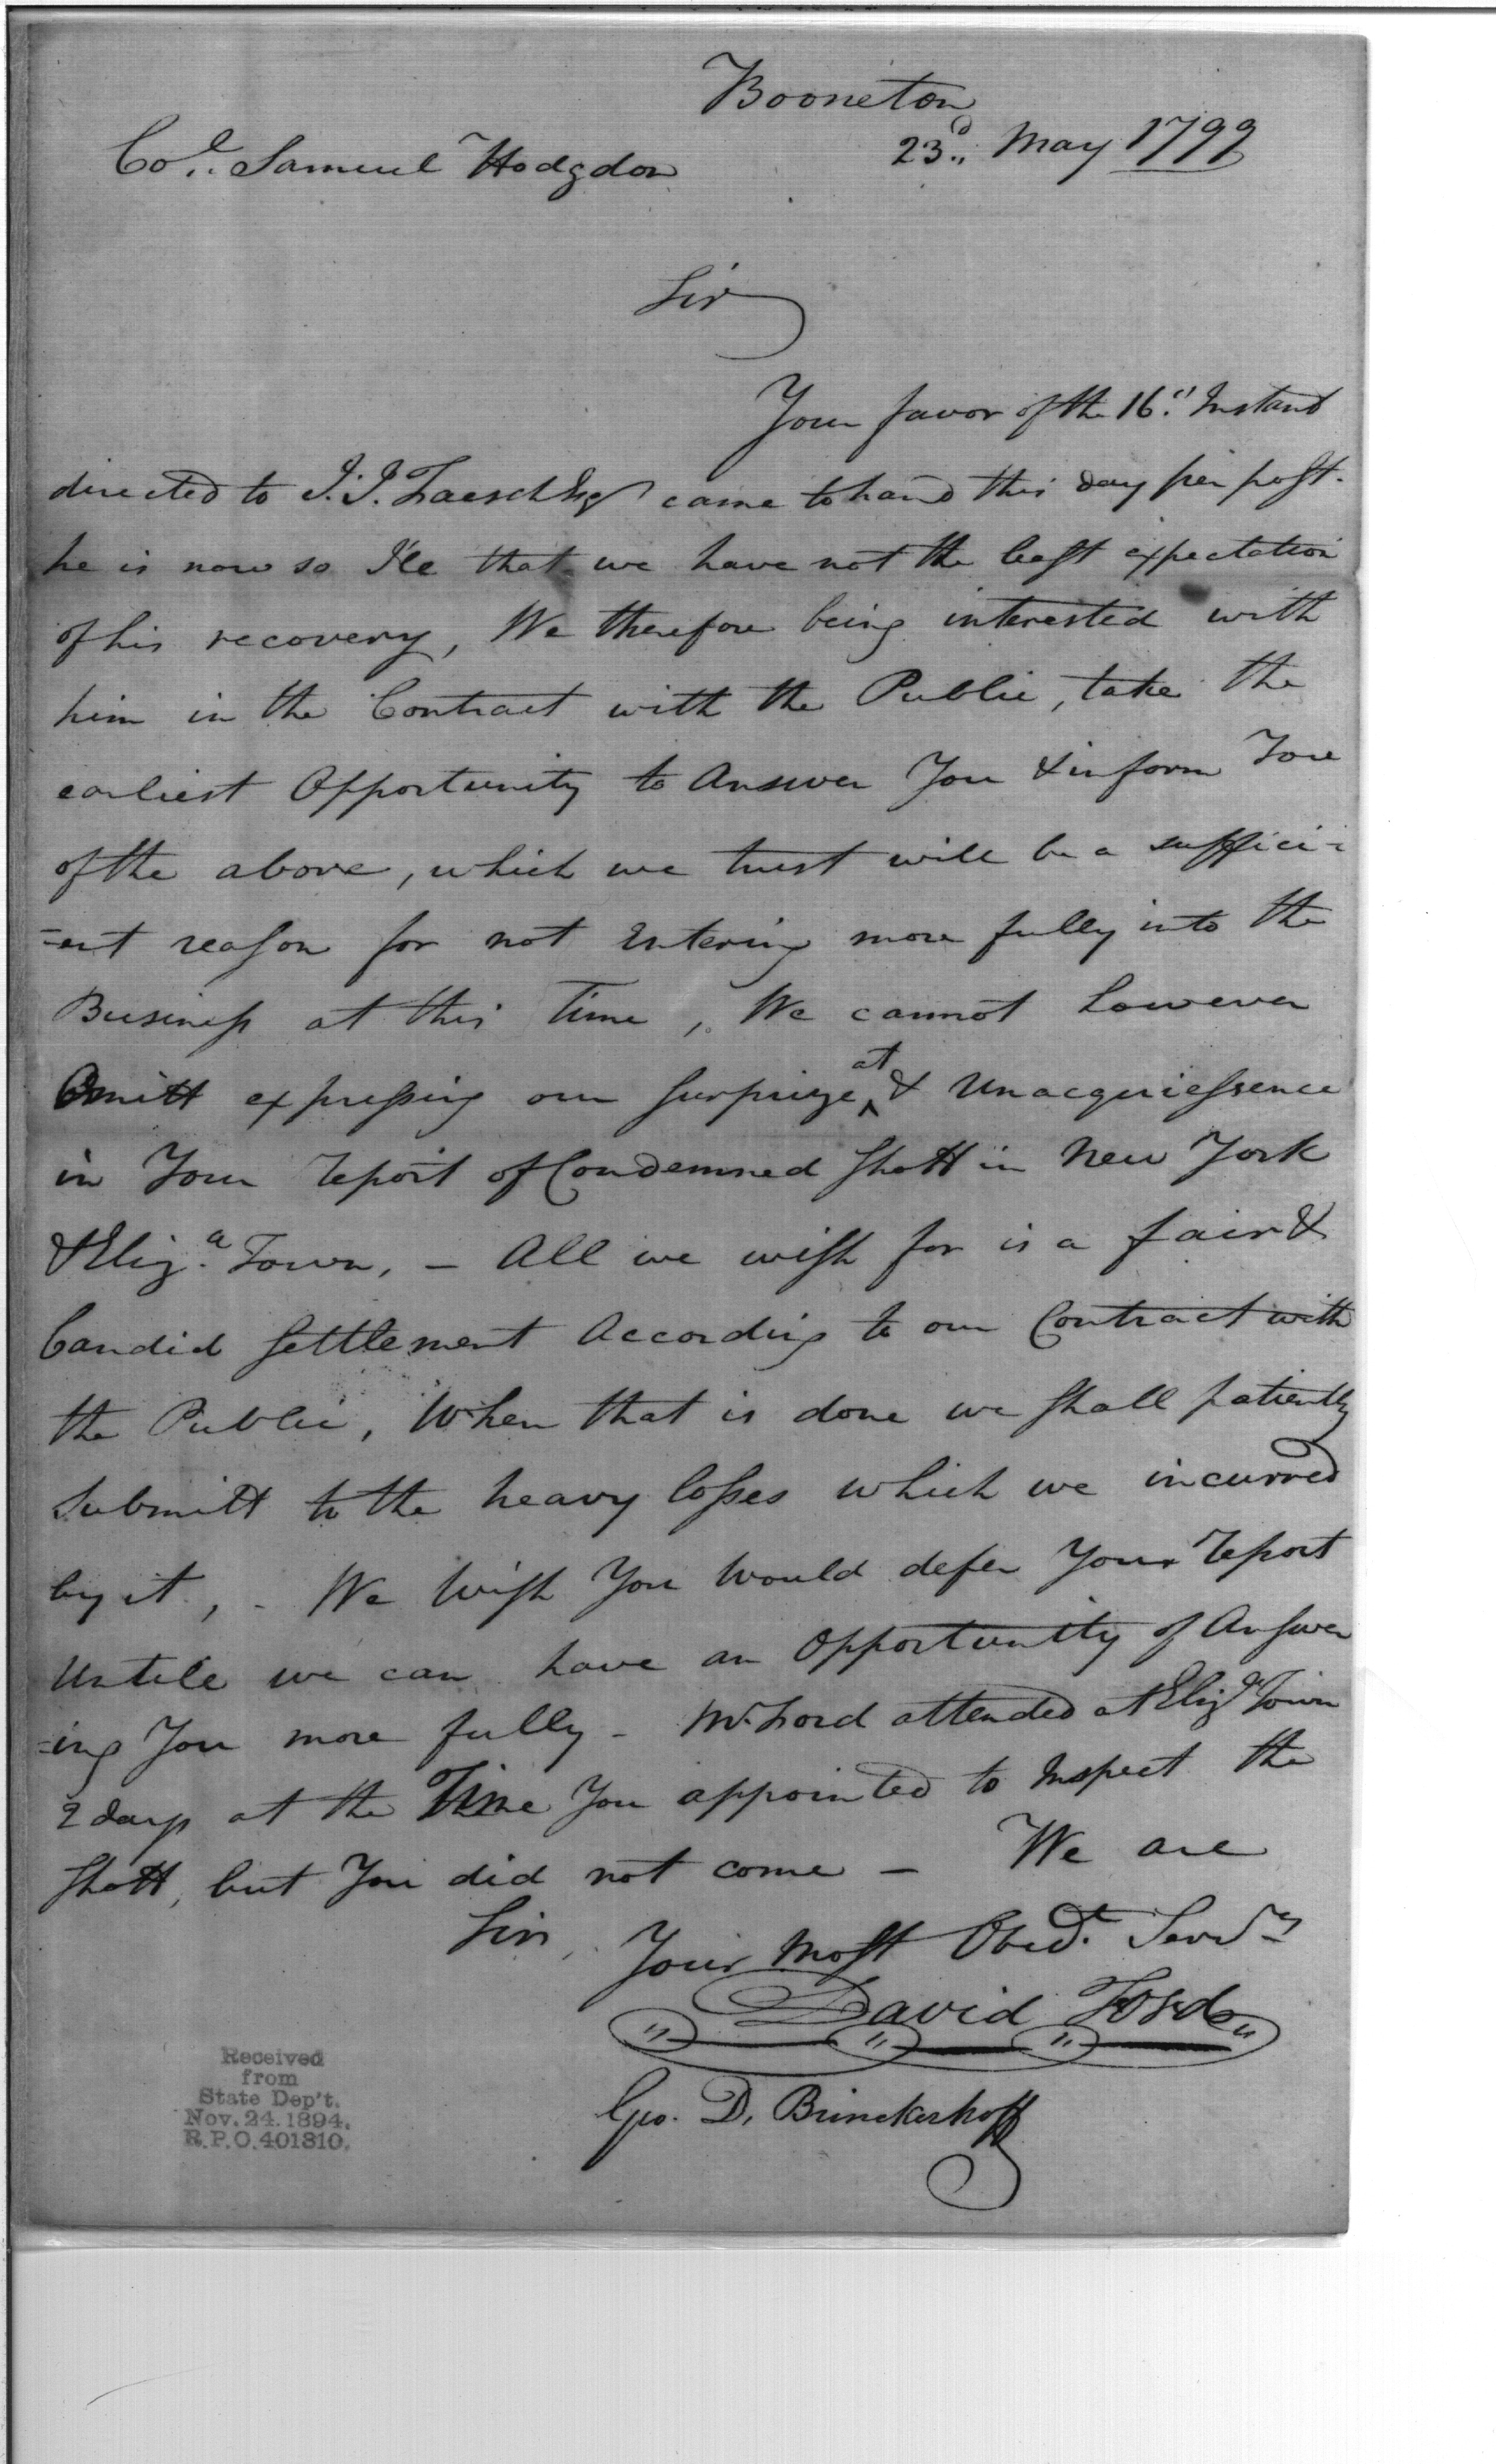 Booneton
23.d May 1799
Col. Samuel Hodgdon
Sir
Your favor of the 16." Instant
directed to J. J. Faesch Esqr came to hand this day per post.
he is now so Ill that we have not the least expectation
of his recovery, We therefore being interested with
him in the Contract with the Public, take the
earliest Opportunity to Answer You & inform You
of the above, which we trust will be a suffici-
=ent reason for not Entering more fully into the
Business at this Time, We cannot however
Omitt expressing our Surprize at & Unacquiessence
in Your report of Condemned Shott in New York
& Eliz.a Town, - All we wish for is a fair &
Candid Settlement According to our Contract with
the Public, When that is done we shall patiently
Submitt to the heavy losses which we incurred
by it, - We Wish You Would defer Your report
Untill we can have an Opportunity of Answer
=ing You more fully - Mr. Ford attended at Eliz.a Town
2 days at the Time You appointed to Inspect the
Shott, but You did not come - We are
Sir, Your Most Obedt. Servts
David Ford
Geo. D. Brinckerhoff
Received
from
State Dep't.
Nov. 24. 1894.
R.P.O. 401310.